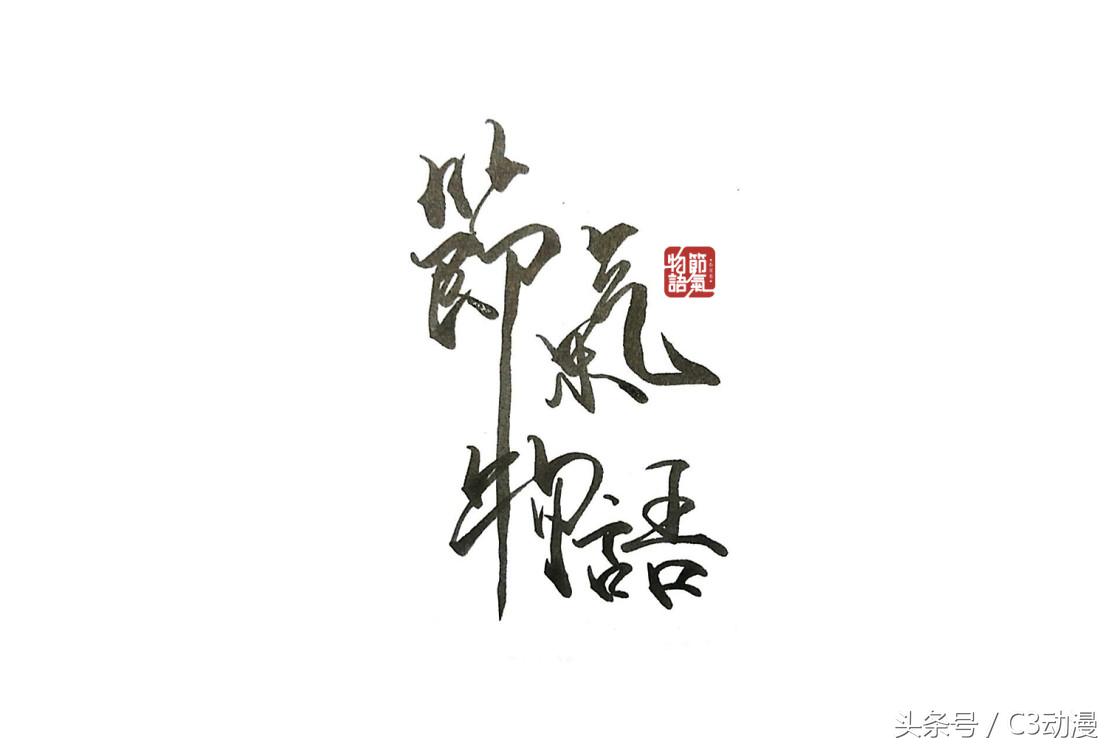 節氣
物語
節氣
物語
头条号 / C3动漫